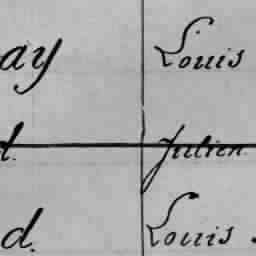 ay Louis
d. Julien
d. Louis